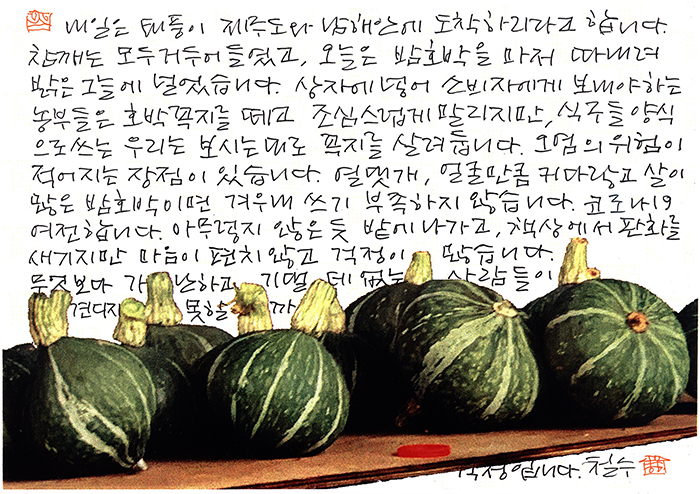 내일은 태풍이 제주도와 남해안에 도착하리라고 합니다.
참깨는 모두 거두어 들였고, 오늘은 밤호박을 마저 따내려
밝은 그늘에 널었습니다. 상자에 넣어 소비자에게 보내야하는
농부들은 호박꼭지를 떼고 조심스럽게 말리지만, 식주들 양식
으로쓰는 우리는 보시는대로 꼭지를 살려둡니다. 오염의 위험이
적어지는 장점이 있습니다. 열댓개, 얼굴만큼 커다랗고 살이
많은 밤호박이면 겨우내 쓰기 부족하지 않습니다. 코로나19
여전합니다. 아무렇지 않은듯 밭에 나가고, 책상에서 판화를
새기지만 마음이 편치않고 걱정이 많습니다.
무엇보다 가난하고 기댈 데 없는 사람들이
견디지 못할까
걱정입니다. 철수